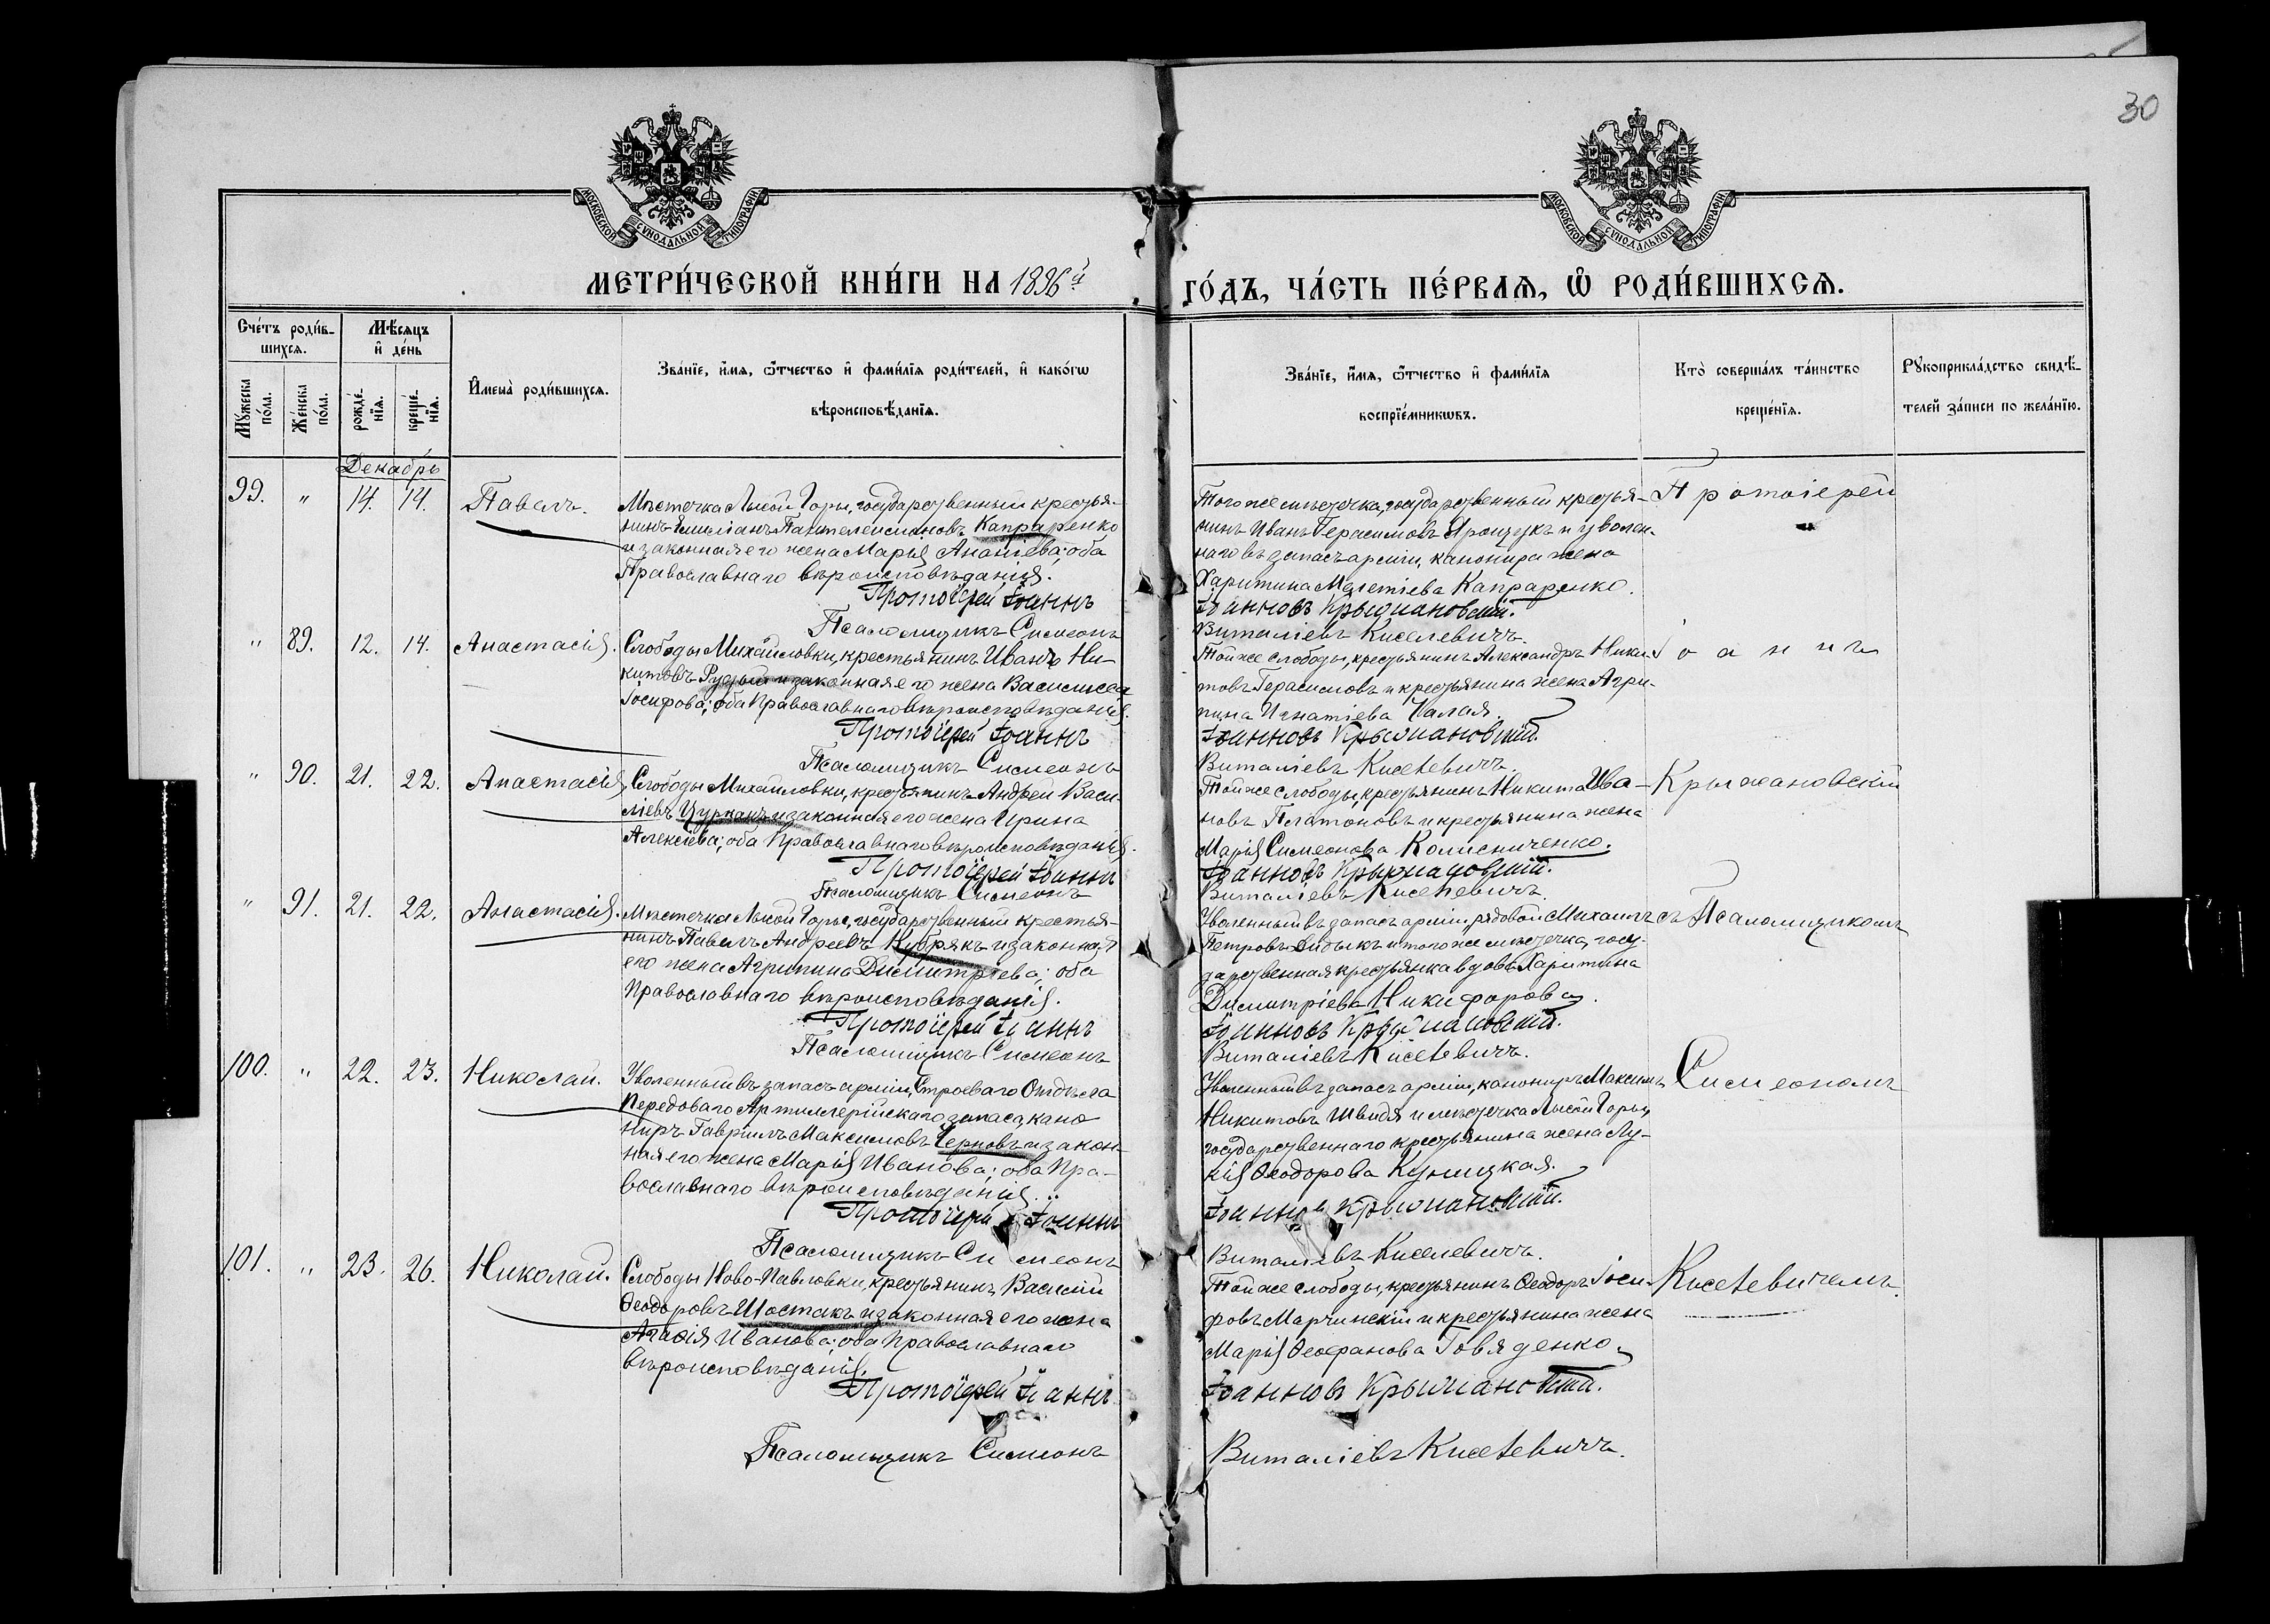 30
МОСКОВСКОЙ СѴНОДАЛЬНОЙ ТИПОГРАФІИ.
МОСКОВСКОЙ СѴНОДАЛЬНОЙ ТИПОГРАФІИ.
МЕТРИ́ЧЕСКОЙ КНИ́ГИ НА 1896й
ГО́ДЪ, ЧА́СТЬ ПЕ́РВАѦ, Ѡ҆ РОДИ́ВШИХСѦ.
Сче́тъ роди́в-
шихсѧ.
Мѣ́сяцъ
и҆ де́нь
Мꙋ́жеска
по́ла.
Же́нска
по́ла.
рожде́-
нїѧ.
креще́-
нїѧ.
И҆мена̀ роди́вшихсѧ.
Зва́нїе, и҆́мѧ, ѻ҆́тчество и҆ фами́лїѧ роди́телей, и҆ како́гѡ
вѣроисповѣ́данїѧ.
Зва́нїе, и҆́мѧ, ѻ҆́тчество и҆ фами́лїѧ
воспрїе́мникѡвъ.
Кто̀ соверша́лъ та́инство
креще́нїѧ.
Рꙋкоприкла́дство свидѣ́-
телей за́писи по жела́нїю.
Декабрь
99. " 14. 14. Павелъ.
Мѣстечка Лысой Горы, государственный крестья-
нинъ Емиліанъ Пантелеимоновъ Капраренко
и законная его жена Марія Ананіева; оба
Православнаго вѣроисповѣданія.
Протоіерей Іоаннъ
Псаломщикъ Симеонъ
Того же мѣстечка, государственный крестья-
нинъ Иванъ Герасимовъ Ярощукъ и уволен-
наго въ запасъ арміи, канонира жена
Харитина Мелетіева Капраренко.
Іоанновъ Крыжановскій.
Виталіевъ Киселевичъ.
Протоіерей
" 89. 12. 14. Анастасія.
Слободы Михайловки, крестьянинъ Иванъ Ни-
китовъ Рудый и законная его жена Василисса
Іосифова; оба Православнаго вѣроисповѣданія.
Протоіерей Іоаннъ
Псаломщикъ Симеонъ
Той же слободы, крестьянинъ Александръ Ники-
товъ Герасимовъ и крестьянина жена Агри-
пина Игнатіева Чалая.
Іоанновъ Крыжановскій.
Виталіевъ Киселевичъ.
Іоаннъ
" 90. 21. 22. Анастасія,
Слободы Михайловки, крестьянинъ Андрей Васи-
ліевъ Цурканъ и законная его жена Ирина
Алексіева; оба Православнаго вѣроисповѣданія.
Протоіерей Іоаннъ
Псаломщикъ Симеонъ
Той же слободы, крестьянинъ Никита Ива-
новъ Платоновъ и крестьянина жена
Марія Симеонова Колисниченко.
Іоанновъ Крыжановскій.
Виталіевъ Киселевичъ.
Крыжановскій
" 91. 21. 22. Анастасія.
Мѣстечка Лысой Горы, государственный крестья-
нинъ Павелъ Андреевъ Кубрякъ и законная
его жена Агрипина Димитріева; оба
Православнаго вѣроисповѣданія.
Протоіерей Іоаннъ
Псаломщикъ Симеонъ
Уволенный въ запасъ арміи, рядовой Михаилъ
Петровъ и того же мѣстечка, госу-
дарственная крестьянка вдова Харитина
Димитріева Никифорова.
Іоанновъ Крыжановскій.
Виталіевъ Киселевичъ.
съ Псаломщикомъ
100. " 22. 23. Николай.
Уволенный въ запасъ арміи, Строеваго Отдѣла
Передоваго Артиллерійскаго запаса, кано-
ниръ Гавріилъ Максимовъ Черновъ и закон-
ная его жена Марія Иванова; оба Пра-
вославнаго вѣроисповѣданія.
Протоіерей Іоаннъ
Псаломщикъ Симеонъ
Уволенный въ запасъ арміи, канониръ Максимъ
Никитовъ Швидя и мѣстечка Лысой Горы,
государственнаго крестьянина жена Лу-
кія Ѳеодорова Куницкая.
Іоанновъ Крыжановскій.
Виталіевъ Киселевичъ.
Симеономъ
101. " 23. 26. Николай.
Слободы Ново-Павловки, крестьянинъ Василій
Ѳеодоровъ Шостакъ и законная его жена
Агафія Иванова; оба Православнаго
вѣроисповѣданія.
Протоіерей Іоаннъ
Псаломщикъ Симеонъ
Той же слободы, крестьянинъ Ѳеодоръ Іоси-
фовъ Марчинскій и крестьянина жена
Марія Ѳеофанова Говяденко.
Іоанновъ Крыжановскій.
Виталіевъ Киселевичъ.
Киселевичемъ.